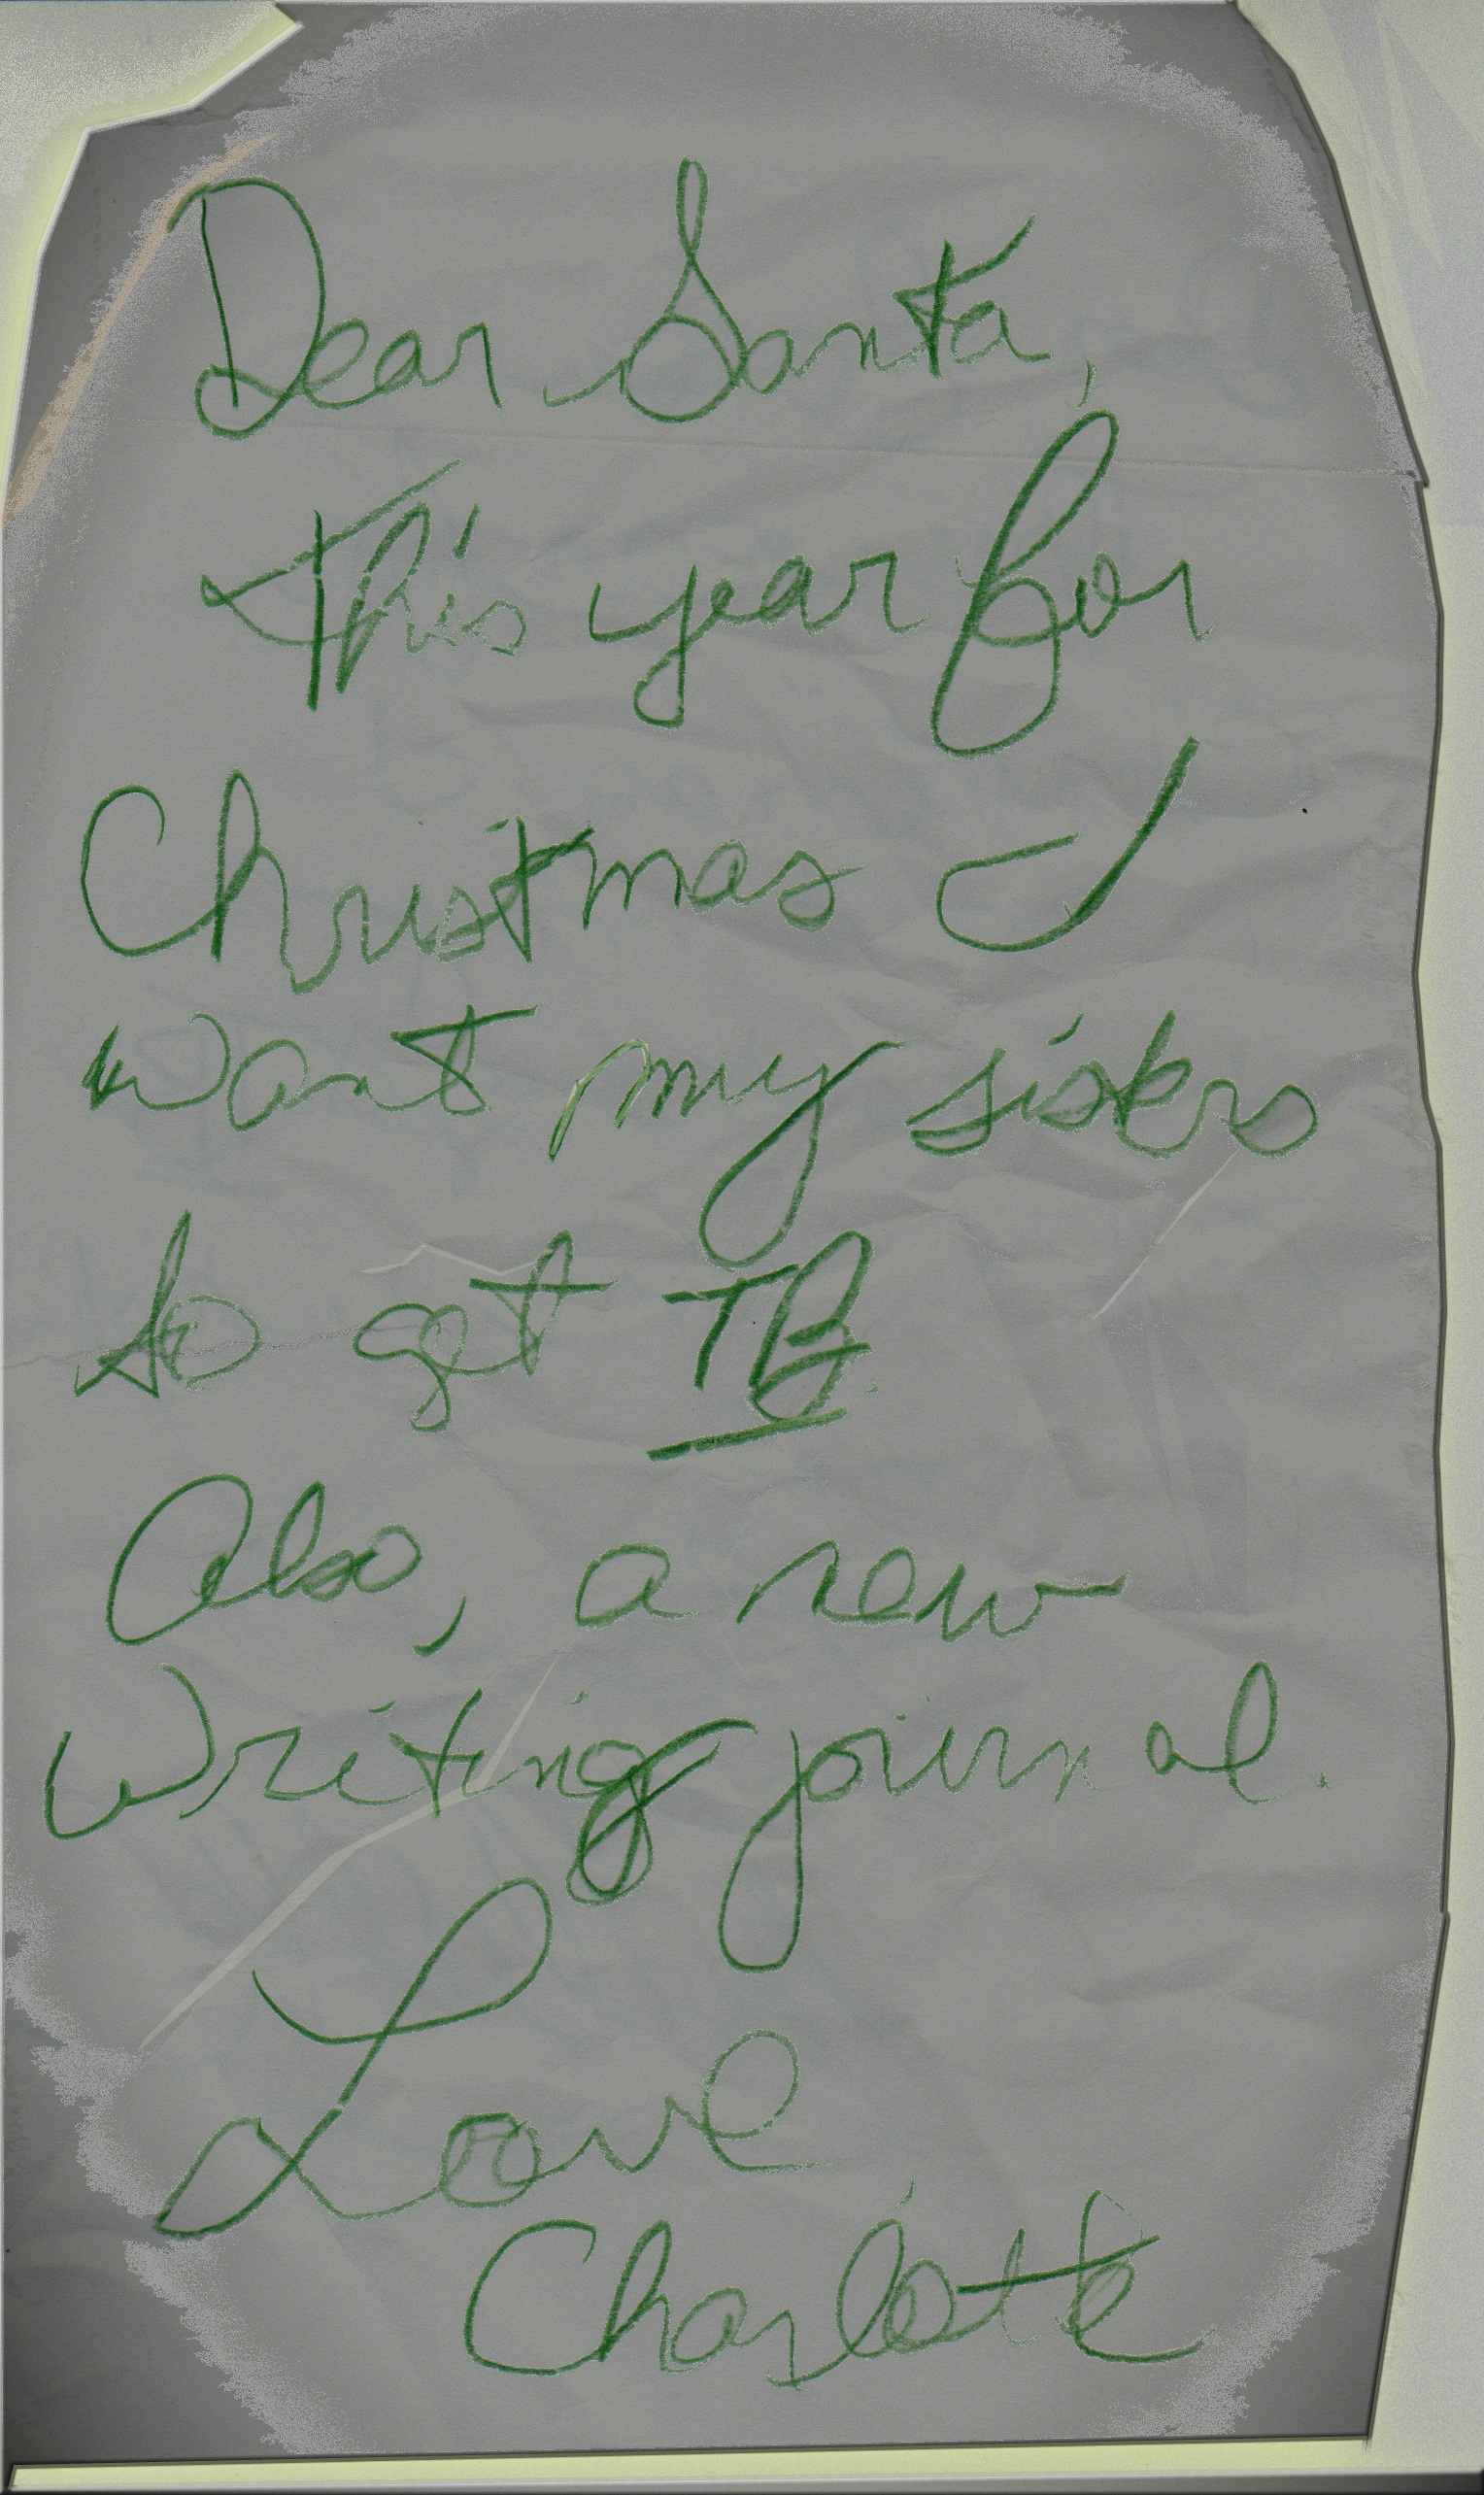 Dear Santa,
This year for
Christmas I
want my sisters
to get TB.
Also, a new
writing journal.
Love,
Charlotte